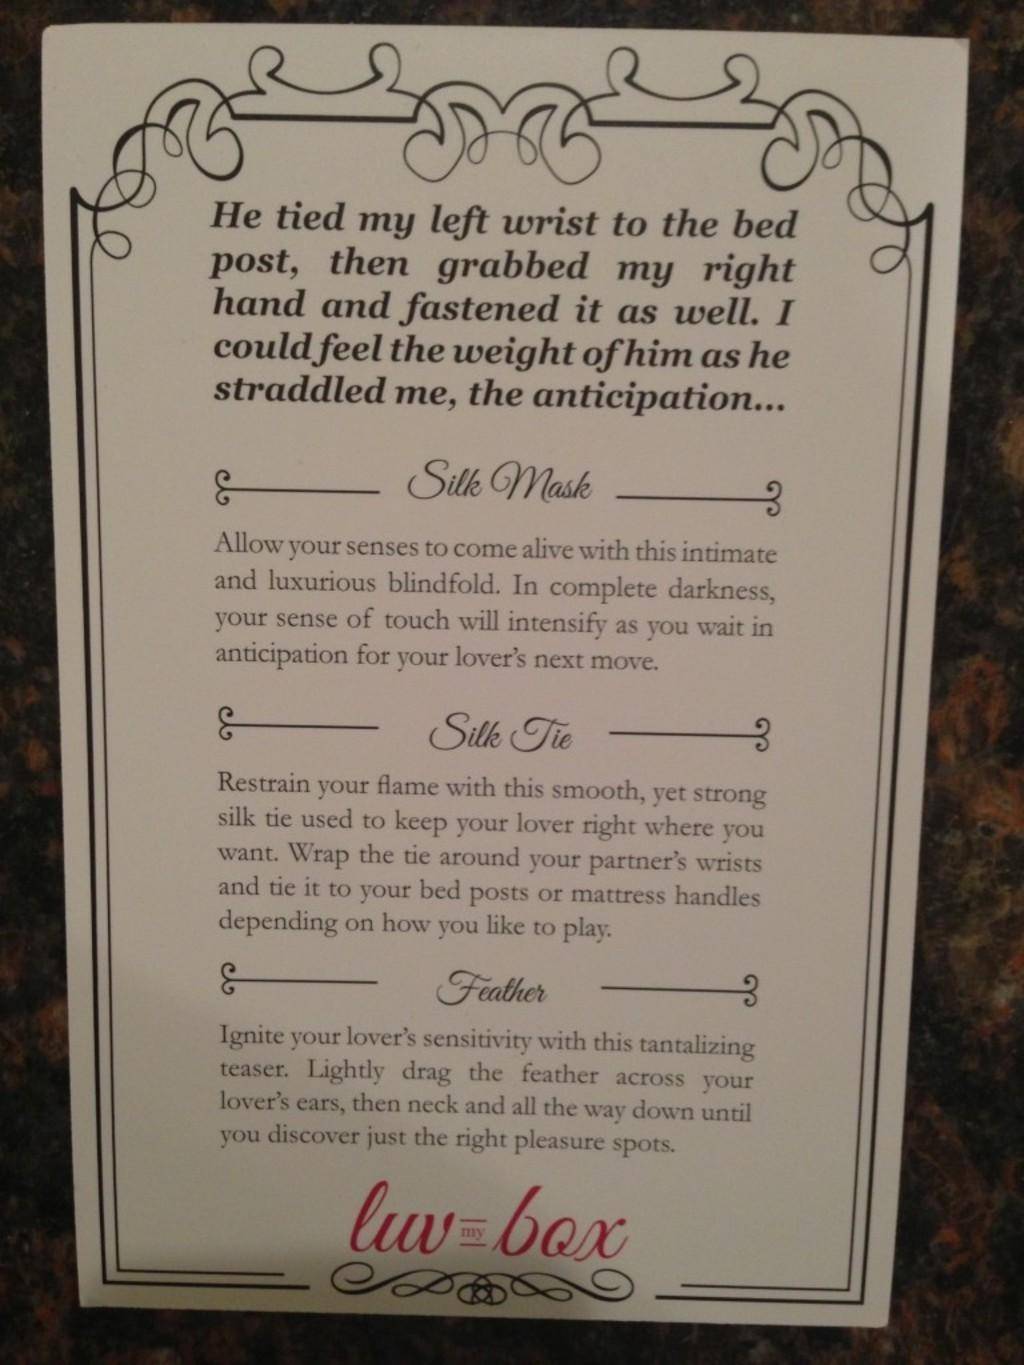 He tied my left wrist to the bed
post, then grabbed my right
hand and fastened it as well. I
could feel the weight of him as he
straddled me, the anticipation...
Silk Mask
Allow your senses to come alive with this intimate
and luxurious blindfold. In complete darkness,
your sense of touch will intensify as you wait in
anticipation for your lover's next move.
Silk Tie
Restrain your flame with this smooth, yet strong
silk tie used to keep your lover right where you
want. Wrap the tie around your partner's wrists
and tie it to your bed posts or mattress handles
depending on how you like to play.
Feather
Ignite your lover's sensitivity with this tantalizing
teaser. Lightly drag the feather across your
lover's ears, then neck and all the way down until
you discover just the right pleasure spots.
luv my box